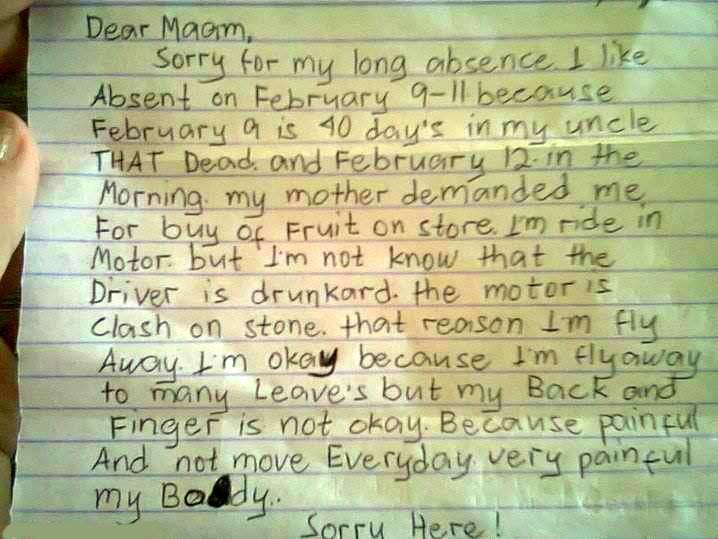 Dear Maam,
Sorry for my long absence. I like
Absent on February 9-11 because
February 9 is 40 day's in my uncle
THAT Dead. and February 12. in the
Morning. my mother demanded me
For buy of Fruit on store. I'm ride in
Motor. but I'm not know that the
Driver is drunkard. the motor is
Clash on stone. that reason I'm fly
Away. I'm okay because I'm flyaway
to many Leave's but my Back and
Finger is not okay. Because painful
And not move Everyday very painful
my Body..
Sorry Here!